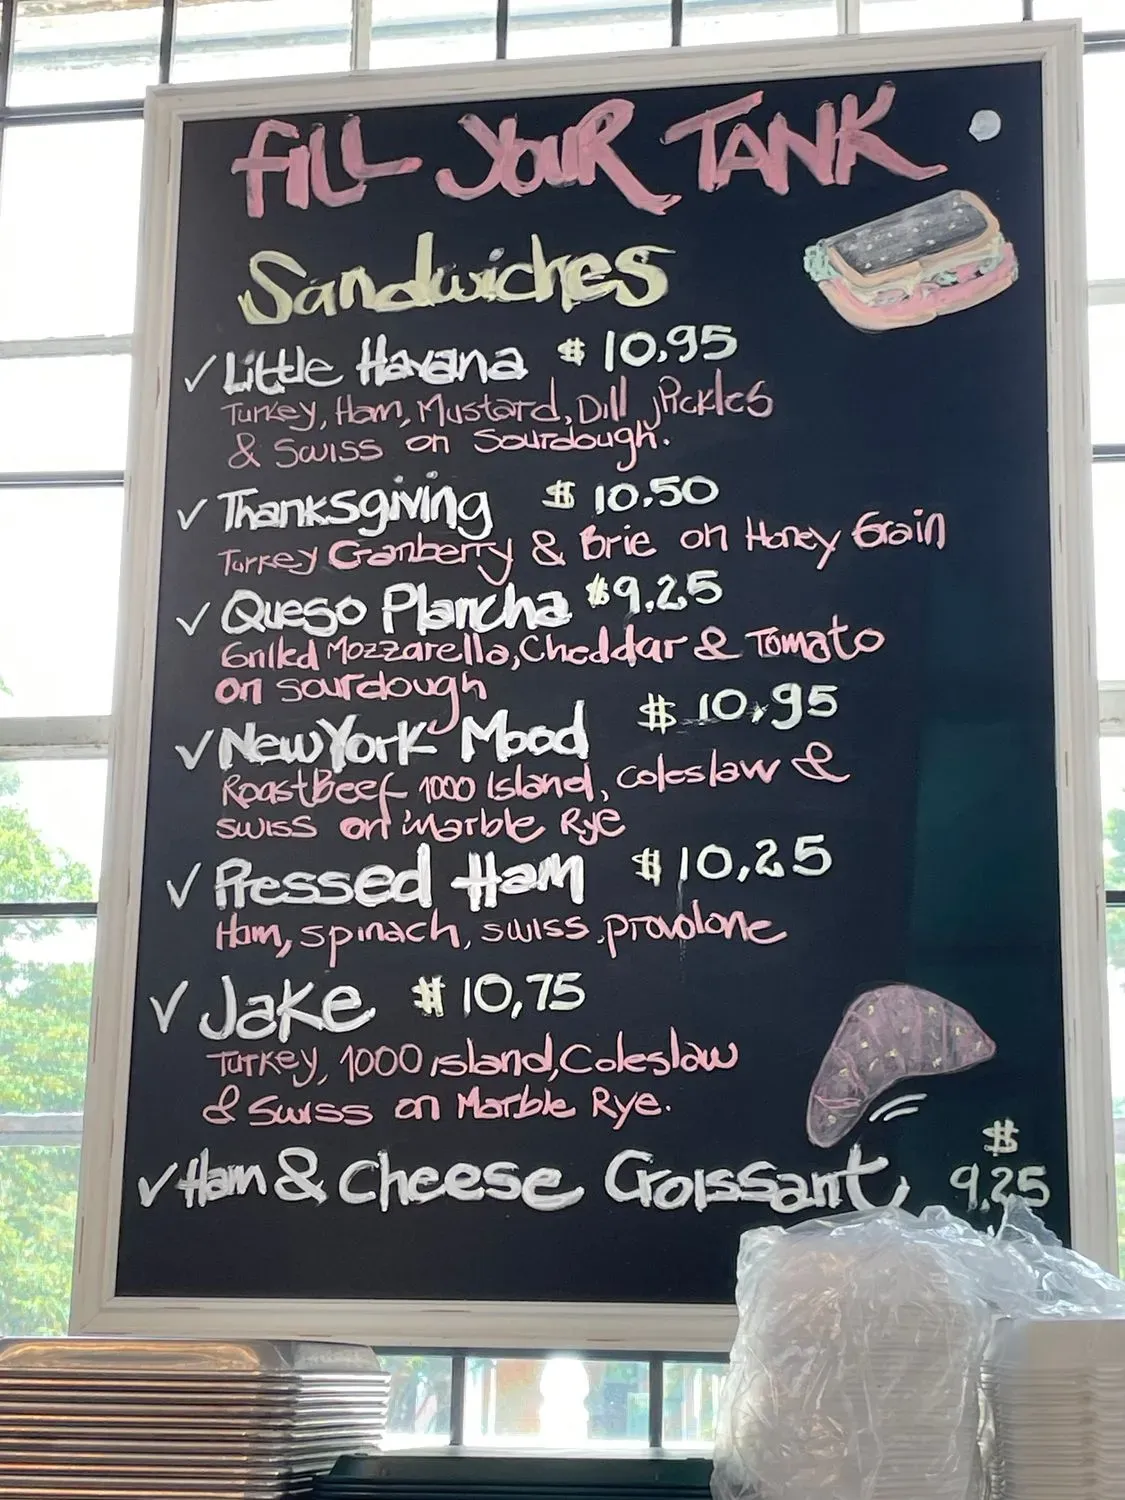 Fill Your Tank
Sandwiches
✓ Little Havana $ 10,95
Turkey, Ham, Mustard, Dill, Pickles
& Swiss on Sourdough.
✓ Thanksgiving $ 10.50
Turkey Cranberry & Brie on Honey Grain
✓ Queso Plancha $9.25
Grilled Mozzarella, Cheddar & Tomato
on sourdough
✓ New York Mood $ 10,95
Roast Beef 1000 Island, coleslaw &
swiss on Marble Rye
✓ Pressed Ham $ 10,25
Ham, spinach, swiss, provolone
✓ Jake $ 10,75
Turkey, 1000 island, Coleslaw
& Swiss on Marble Rye.
✓ Ham & Cheese Croissant, $ 9,25